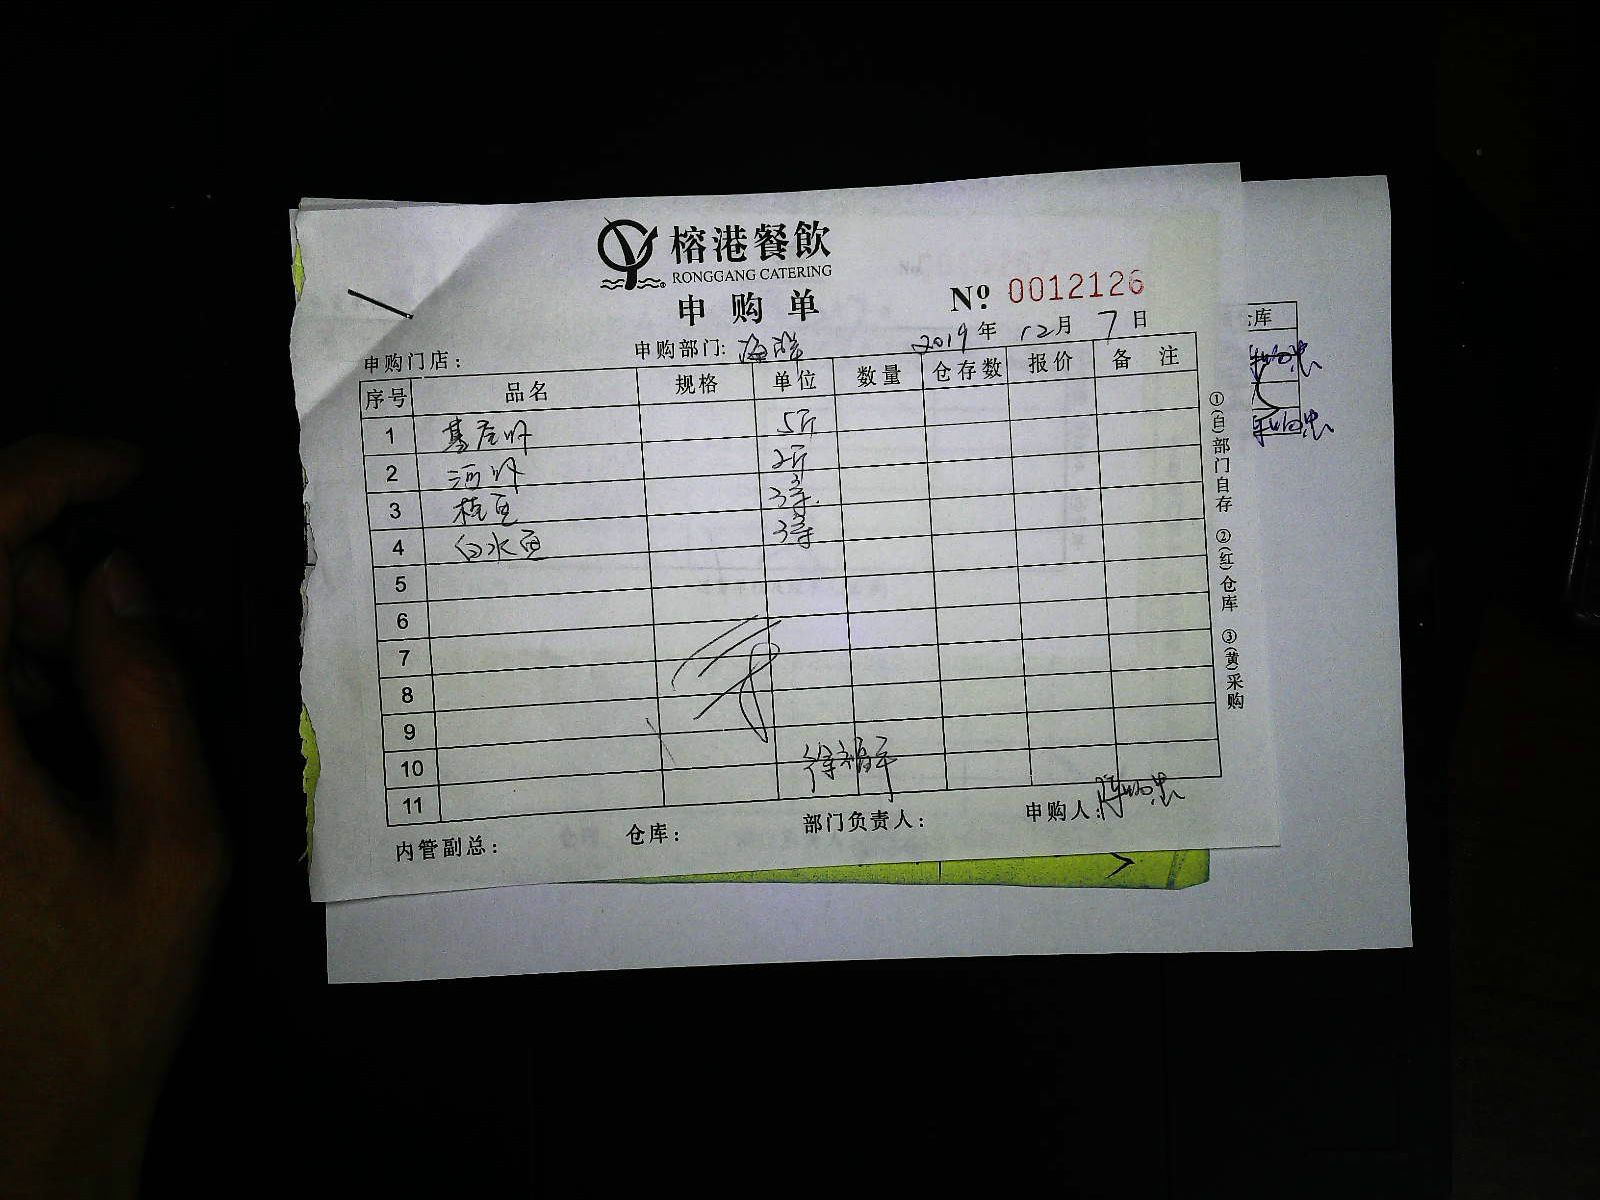 榕港餐飲
RONGGANG CATERING
申购单
№ 0012126
申购门店： 申购部门: 海鲜 2019年12月7日
序号 品名 规格 单位 数量 仓存数 报价 备注
1 基尾虾 5斤
2 河虾 2斤
3 桂鱼 3条
4 白水鱼 3条
5
6
7
8
9
10
11
徐福平
内管副总： 仓库： 部门负责人： 申购人：
①(白)部门自存 ②(红)仓库 ③(黄)采购
仓库